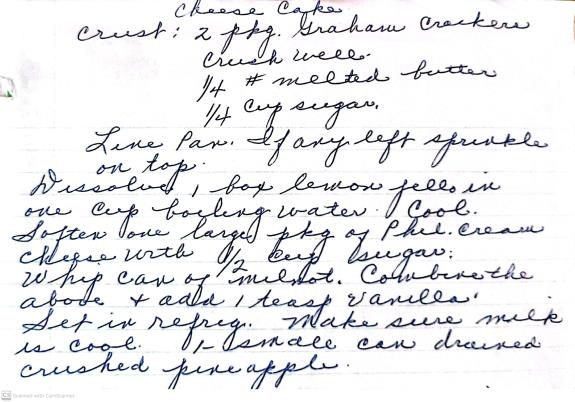 Cheese Cake
Crust: 2 pkg. Graham Crackers
Crush well.
1/4 # melted butter
1/4 cup sugar.
Line Pan. If any left sprinkle
on top.
Dissolve 1 box lemon jello in
one cup boiling water. Cool.
Soften one large pkg of Phil. Cream
cheese with 1/2 cup sugar.
Whip can of milnot. Combine the
above & add 1 teasp vanilla.
Set in refrig. Make sure milk
is cool. 1- small can drained
crushed pineapple.
CS Scanned with CamScanner